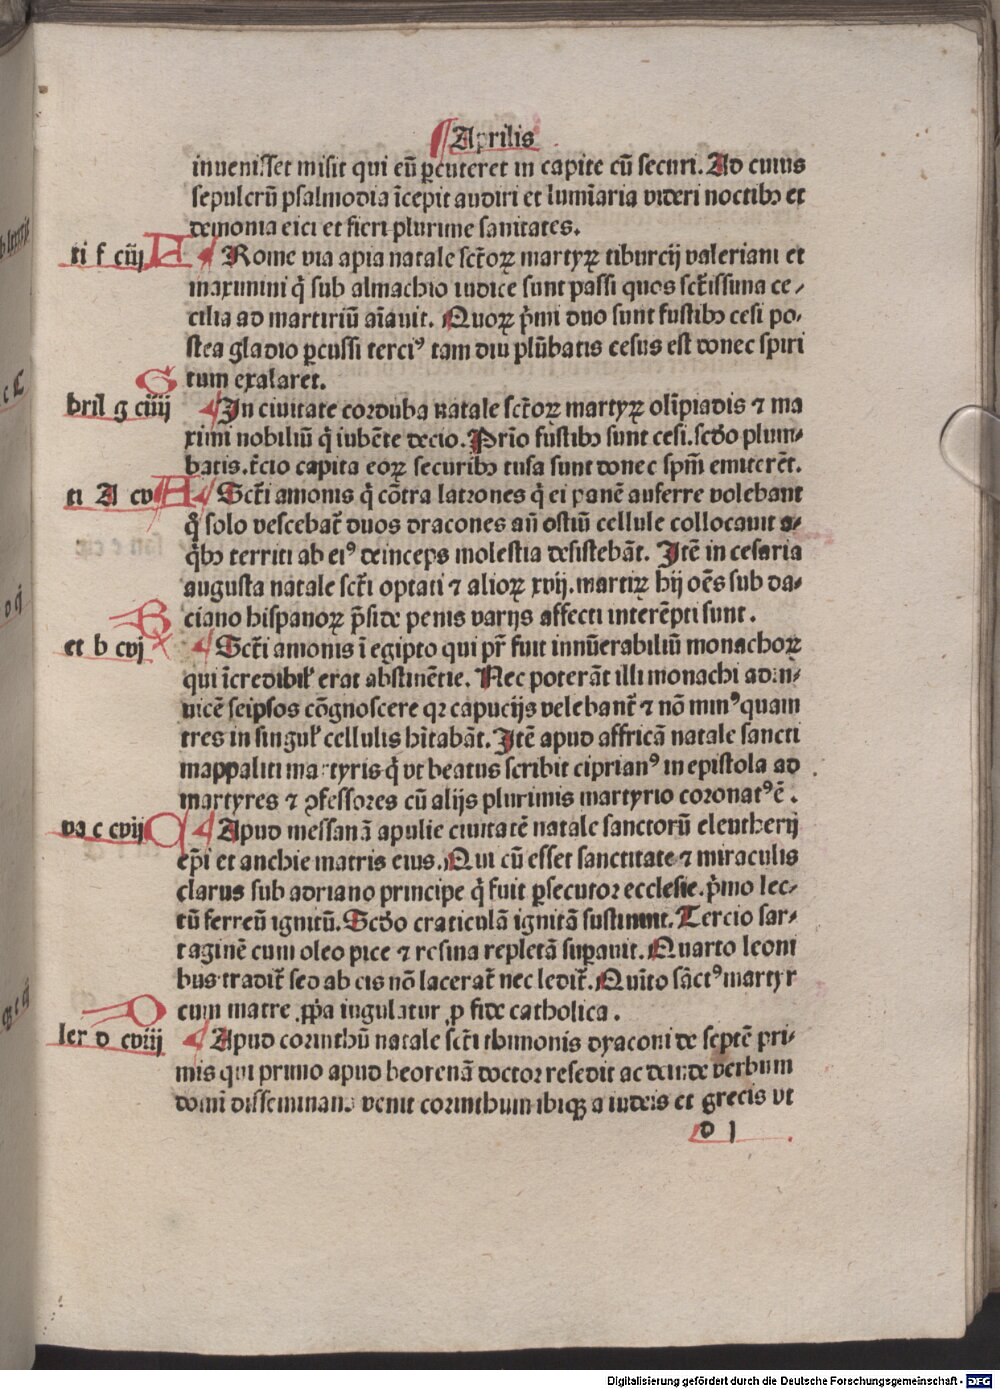 Aprilis
inuenisset misit qui eū ꝑcuteret in capite cū securi. Ad cuius
sepulcrū psalmodia īcepit audiri et lumīaria videri noctibꝫ et
demonia eici et fieri plurime sanitates.
ti f ciij A Rome via apia natale sctōꝝ martyꝝ tiburcij valeriani et
maximini q̄ sub almachio iudice sunt passi quos sctīssima ce/
cilia ad martiriū aīauit. Quoꝝ p̄mi duo sunt fustibꝫ cesi po-
stea gladio ꝑcussi terciꝰ tam diu plūbatis cesus est donec spiri
G tum exalaret.
bril g ciiij In ciuitate corduba natale sctōꝝ martyꝝ olīpiadis ⁊ ma
ximi nobiliū q̄ iubēte decio. Prīo fustibꝫ sunt cesi. scd̄o plum-
batis. tc̄io capita eoꝝ securibꝫ tusa sunt donec spm̄ emiterēt.
ti A cv A Sctī amonis q̄ cōtra latrones q̄ ei panē auferre volebant
q̄ solo vescebat̄ duos dracones an̄ ostiū cellule collocauit a-
q̄bꝫ territi ab eiꝰ deinceps molestia desistebāt. Itē in cesaria
augusta natale sctī optati ⁊ alioꝝ xvij. martiꝝ hij oēs sub da-
B ciano hispanoꝝ p̄side penis varijs affecti interēpti sunt.
et b cvj Sctī amonis ī egipto qui pr̄ fuit innūerabiliū monachoꝝ
qui īcredibil̄ erat abstinētie. Nec poterāt illi monachi ad in-
uicē seipsos cōgnoscere qꝛ capucijs velebant̄ ⁊ nō minꝰ quam
tres in singul̄ cellulis hītabāt. Itē apud affricā natale sancti
mappaliti martyris q̄ vt beatus scribit cipriānꝰ in epistola ad
martyres ⁊ ꝯfessores cū alijs plurimis martyrio coronatꝰ ē.
va c cvij O Apud messanā apulie ciuitatē natale sanctorū eleutherij
ep̄i et anchie matris eius. Qui cū esset sanctitate ⁊ miraculis
clarus sub adriano principe q̄ fuit ꝑsecutor ecclesie. p̄mo lec-
tū ferreū ignitū. Scd̄o craticulā ignitā sustinuit. Tercio sar-
taginē cum oleo pice ⁊ resina repletā suꝑauit. Quarto leoni
bus tradit̄ sed ab eis nō lacerat̄ nec ledit̄. Quīto sāctꝰ martyr
O cum matre ꝓpa iugulatur ꝓ fide catholica.
ler d cviij Apud corinthū natale sctī thimonis dyaconi de septē pri-
mis qui primo apud beorenā doctor resedit ac deinde verbum
domī disseminans venit corinthum ibiqꝫ a iudeis et grecis vt
d 1
Digitalisierung gefördert durch die Deutsche Forschungsgemeinschaft - DFG